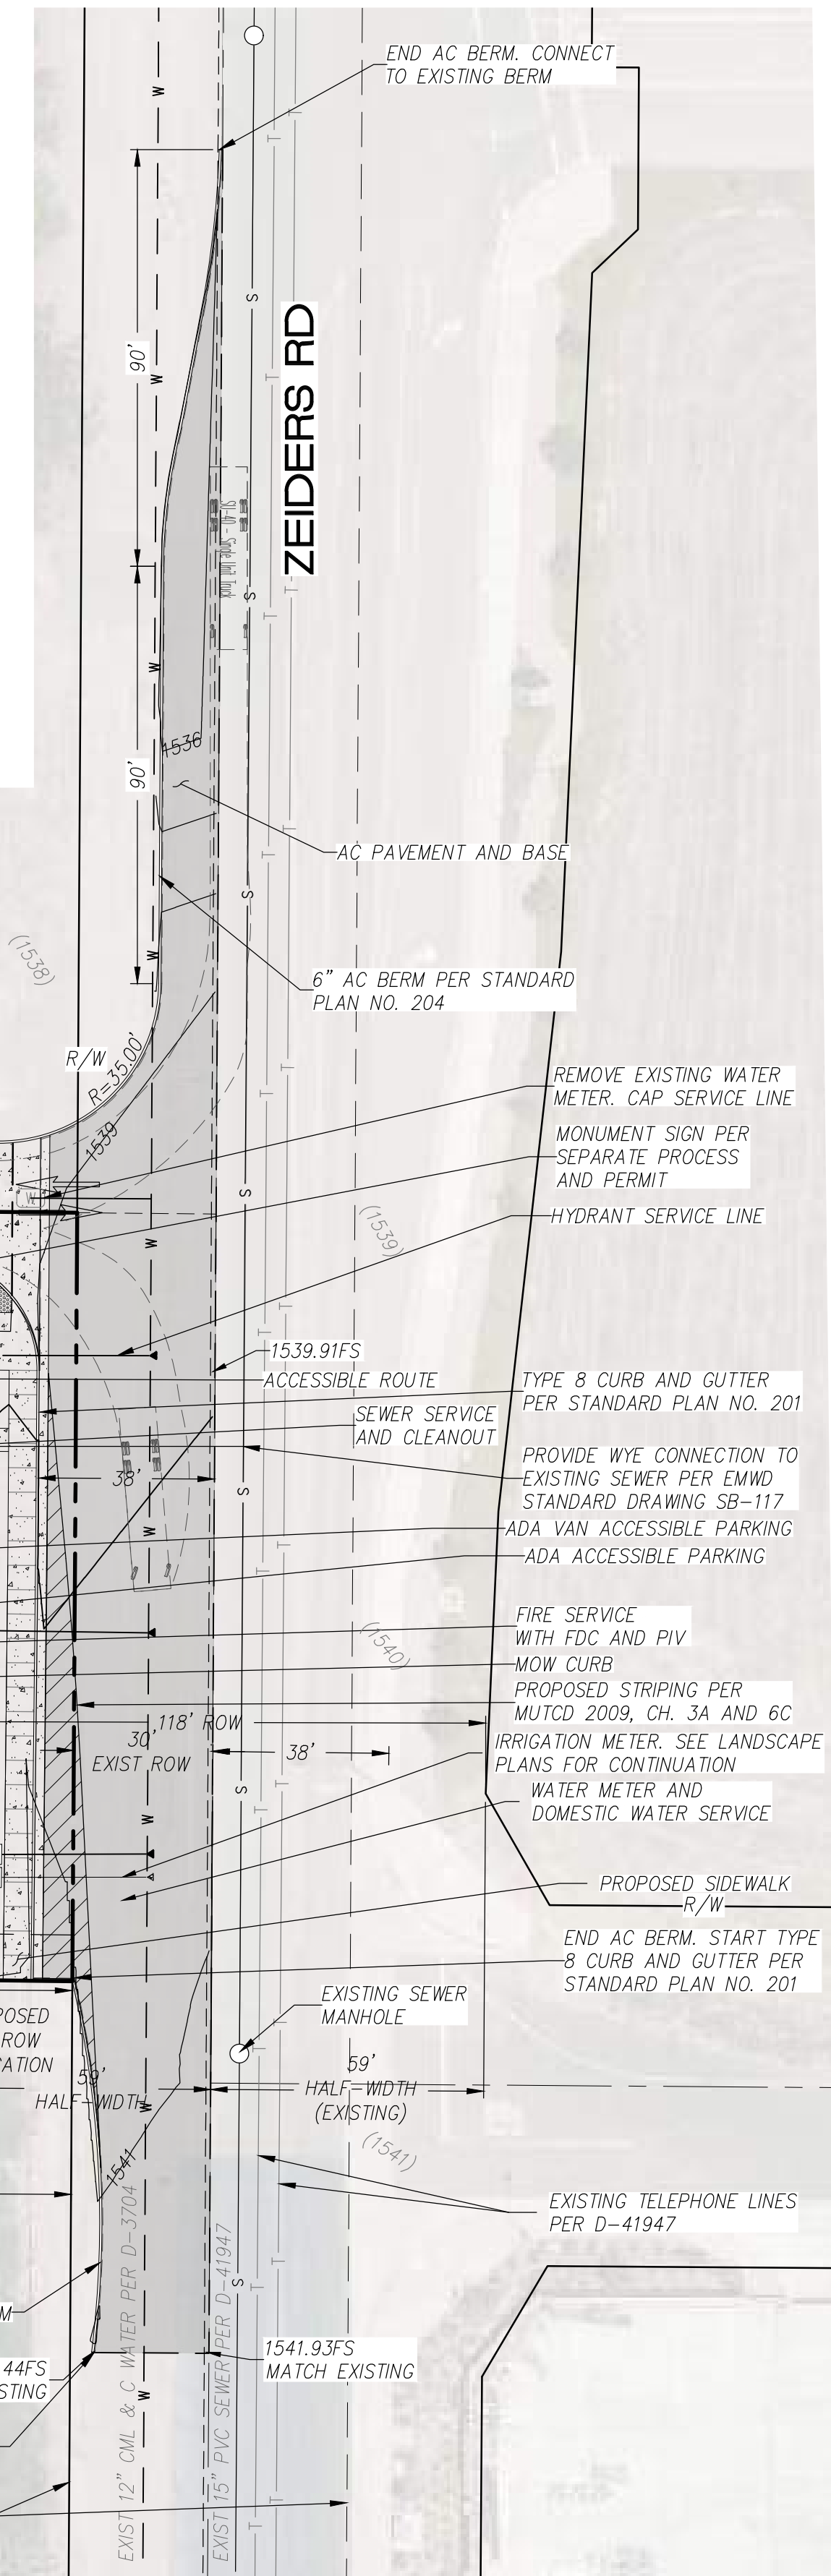 END AC BERM. CONNECT
TO EXISTING BERM
W
T
T
S
90'
ZEIDERS RD
W
T
T
SU-40 - Single Unit Truck
S
T
T
W
1536
90'
T
T
AC PAVEMENT AND BASE
S
(1538)
W
6" AC BERM PER STANDARD
PLAN NO. 204
R/W
R=35.00'
T
T
REMOVE EXISTING WATER
METER. CAP SERVICE LINE
1539
MONUMENT SIGN PER
SEPARATE PROCESS
AND PERMIT
S
(1539)
HYDRANT SERVICE LINE
W
T
T
1539.91FS
ACCESSIBLE ROUTE
TYPE 8 CURB AND GUTTER
PER STANDARD PLAN NO. 201
SEWER SERVICE
AND CLEANOUT
PROVIDE WYE CONNECTION TO
EXISTING SEWER PER EMWD
STANDARD DRAWING SB-117
38'
S
ADA VAN ACCESSIBLE PARKING
W
T
T
ADA ACCESSIBLE PARKING
FIRE SERVICE
WITH FDC AND PIV
(1540)
MOW CURB
PROPOSED STRIPING PER
MUTCD 2009, CH. 3A AND 6C
118' ROW
30'
EXIST ROW
38'
IRRIGATION METER. SEE LANDSCAPE
PLANS FOR CONTINUATION
S
T
T
W
WATER METER AND
DOMESTIC WATER SERVICE
PROPOSED SIDEWALK
R/W
END AC BERM. START TYPE
8 CURB AND GUTTER PER
STANDARD PLAN NO. 201
EXISTING SEWER
MANHOLE
POSED
ROW
CATION
T
T
59'
HALF-WIDTH
59'
HALF-WIDTH
(EXISTING)
W
(1541)
1541
EXISTING TELEPHONE LINES
PER D-41947
T
T
S
M
44FS
STING
1541.93FS
MATCH EXISTING
W
EXIST 12" CML & C WATER PER D-3704
EXIST 15" PVC SEWER PER D-41947
T
T